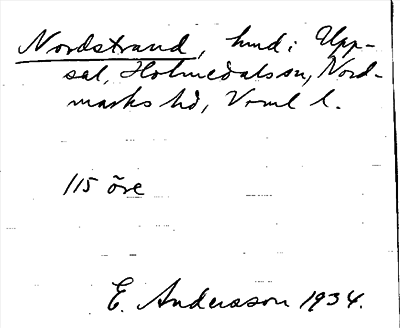 Nordstrand, hmd i Upp-
sal, Holmedals sn, Nord-
marks hd, Vrml l.
115 öre
E. Andersson 1934.